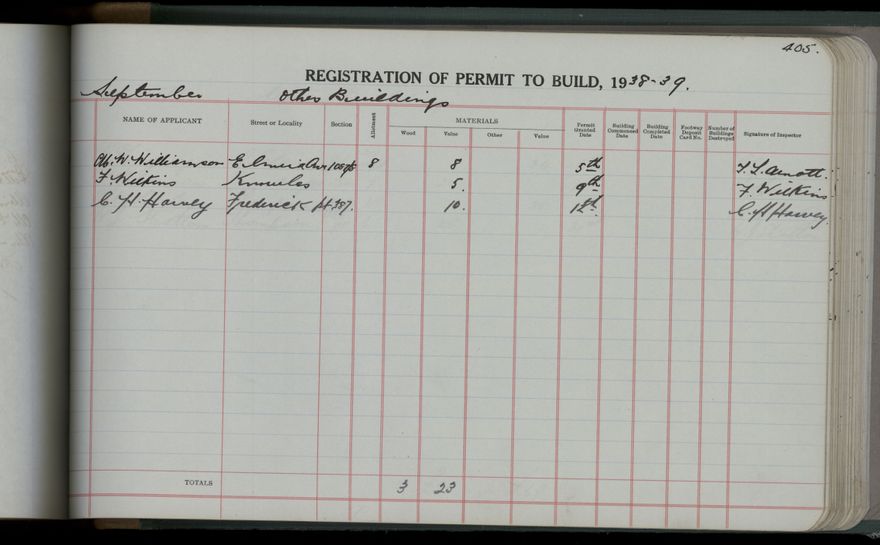 405.
REGISTRATION OF PERMIT TO BUILD, 1938-39.
September Other Buildings
NAME OF APPLICANT Street or Locality Section Allotment MATERIALS Wood Value Other Value Permit Granted Date Building Commenced Date Building Completed Date Footway Deposit Card No. Number of Buildings Destroyed Signature of Inspector
W. Williamson 8 8 5th Arnott.
F. Wilkins Knowles 5. 9th F. Wilkins
C. H. Harvey Frederick pt. 787. 10. 12th C. H Harvey.
TOTALS 3 23